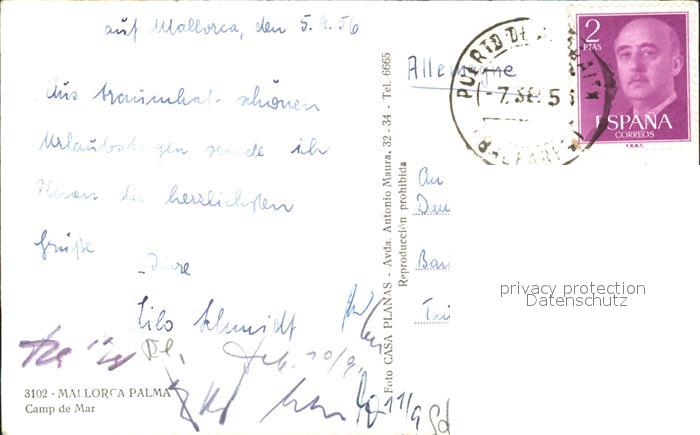 auf Mallorca, den 5.9.56
Aus traumhaft schönen
Urlaubstagen sende ich
Ihnen die herzlichsten
Grüße
Ihre
Lilo Schmidt
3102 - MALLORCA PALMA
Camp de Mar
Foto CASA PLANAS - Avda. Antonio Maura, 32 - 34 - Tel. 6665
Reproducción prohibida
Allemagne
PUERTO DE
-7. SE. 5
(BALEARES)
2
PTAS
ESPAÑA
CORREOS
F.N.M.T.
An
privacy protection
Datenschutz
10/9
11/9